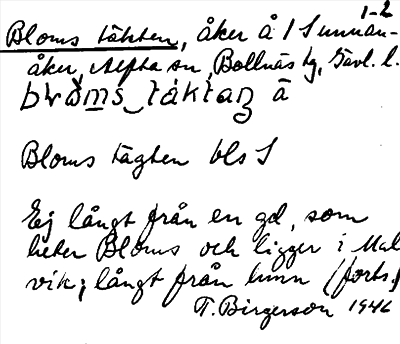 1-2
Bloms täkten, åker å 1 Sunnan-
åker, Alfta sn, Bollnäs tg, Gävl. l.
Bloms tägten bls S
Ej långt från en gd, som
heter Bloms och ligger i Mal
vik; långt från hnn (forts.)
T. Birgerson 1946